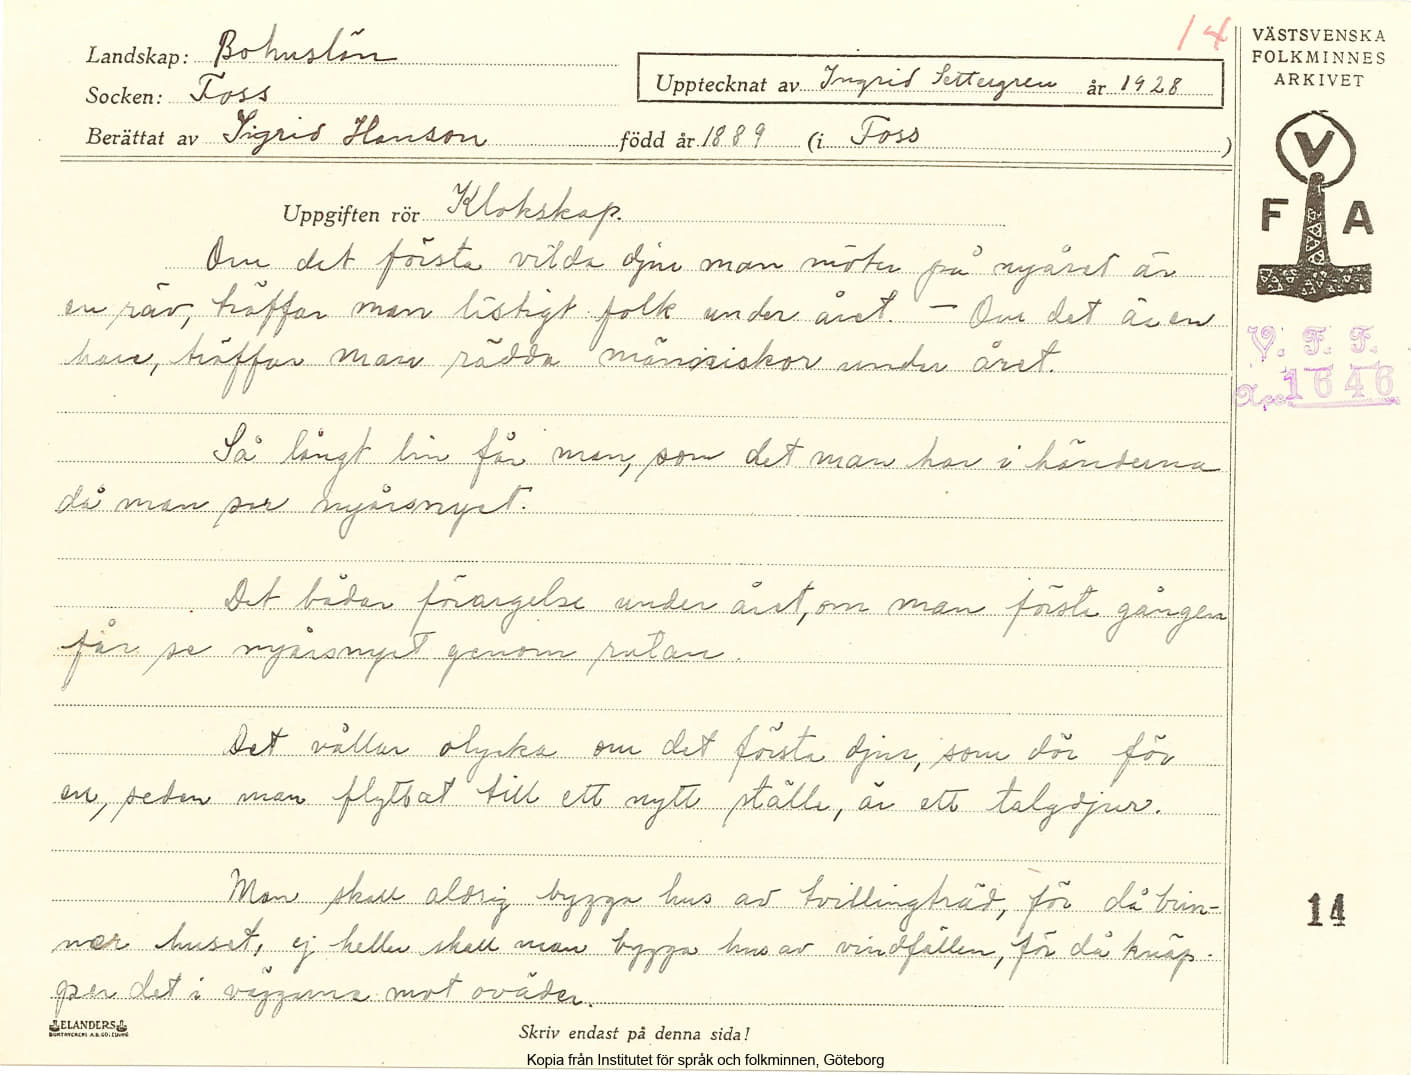 14
Landskap: Bohuslän
Socken: Foss
Upptecknat av Ingrid Settergren år 1928
Berättat av Sigrid Hanson född år 1889 (i Foss )
Uppgiften rör Klokskap.
Om det första vilda djur man möter på nyåret är
en räv, träffar man listigt folk under året. – Om det är en
hare, träffar man rädda människor under året.
Så långt lin får man, som det man har i händerna
då man ser nyårsnyet.
Det bådar förargelse under året, om man första gången
får se nyårsnyet genom rutan.
Det vållar olycka om det första djur, som dör för
en, sedan man flyttat till ett nytt ställe, är ett talgdjur.
Man skall aldrig bygga hus av tvillingträd, för då brin-
ner huset, ej heller skall man bygga hus av vindfällen, för då knäp-
per det i väggarna mot oväder.
ELANDERS
Skriv endast på denna sida!
Kopia från Institutet för språk och folkminnen, Göteborg
VÄSTSVENSKA
FOLKMINNES
ARKIVET
V
F A
V. F. F.
Acc. 1646
14